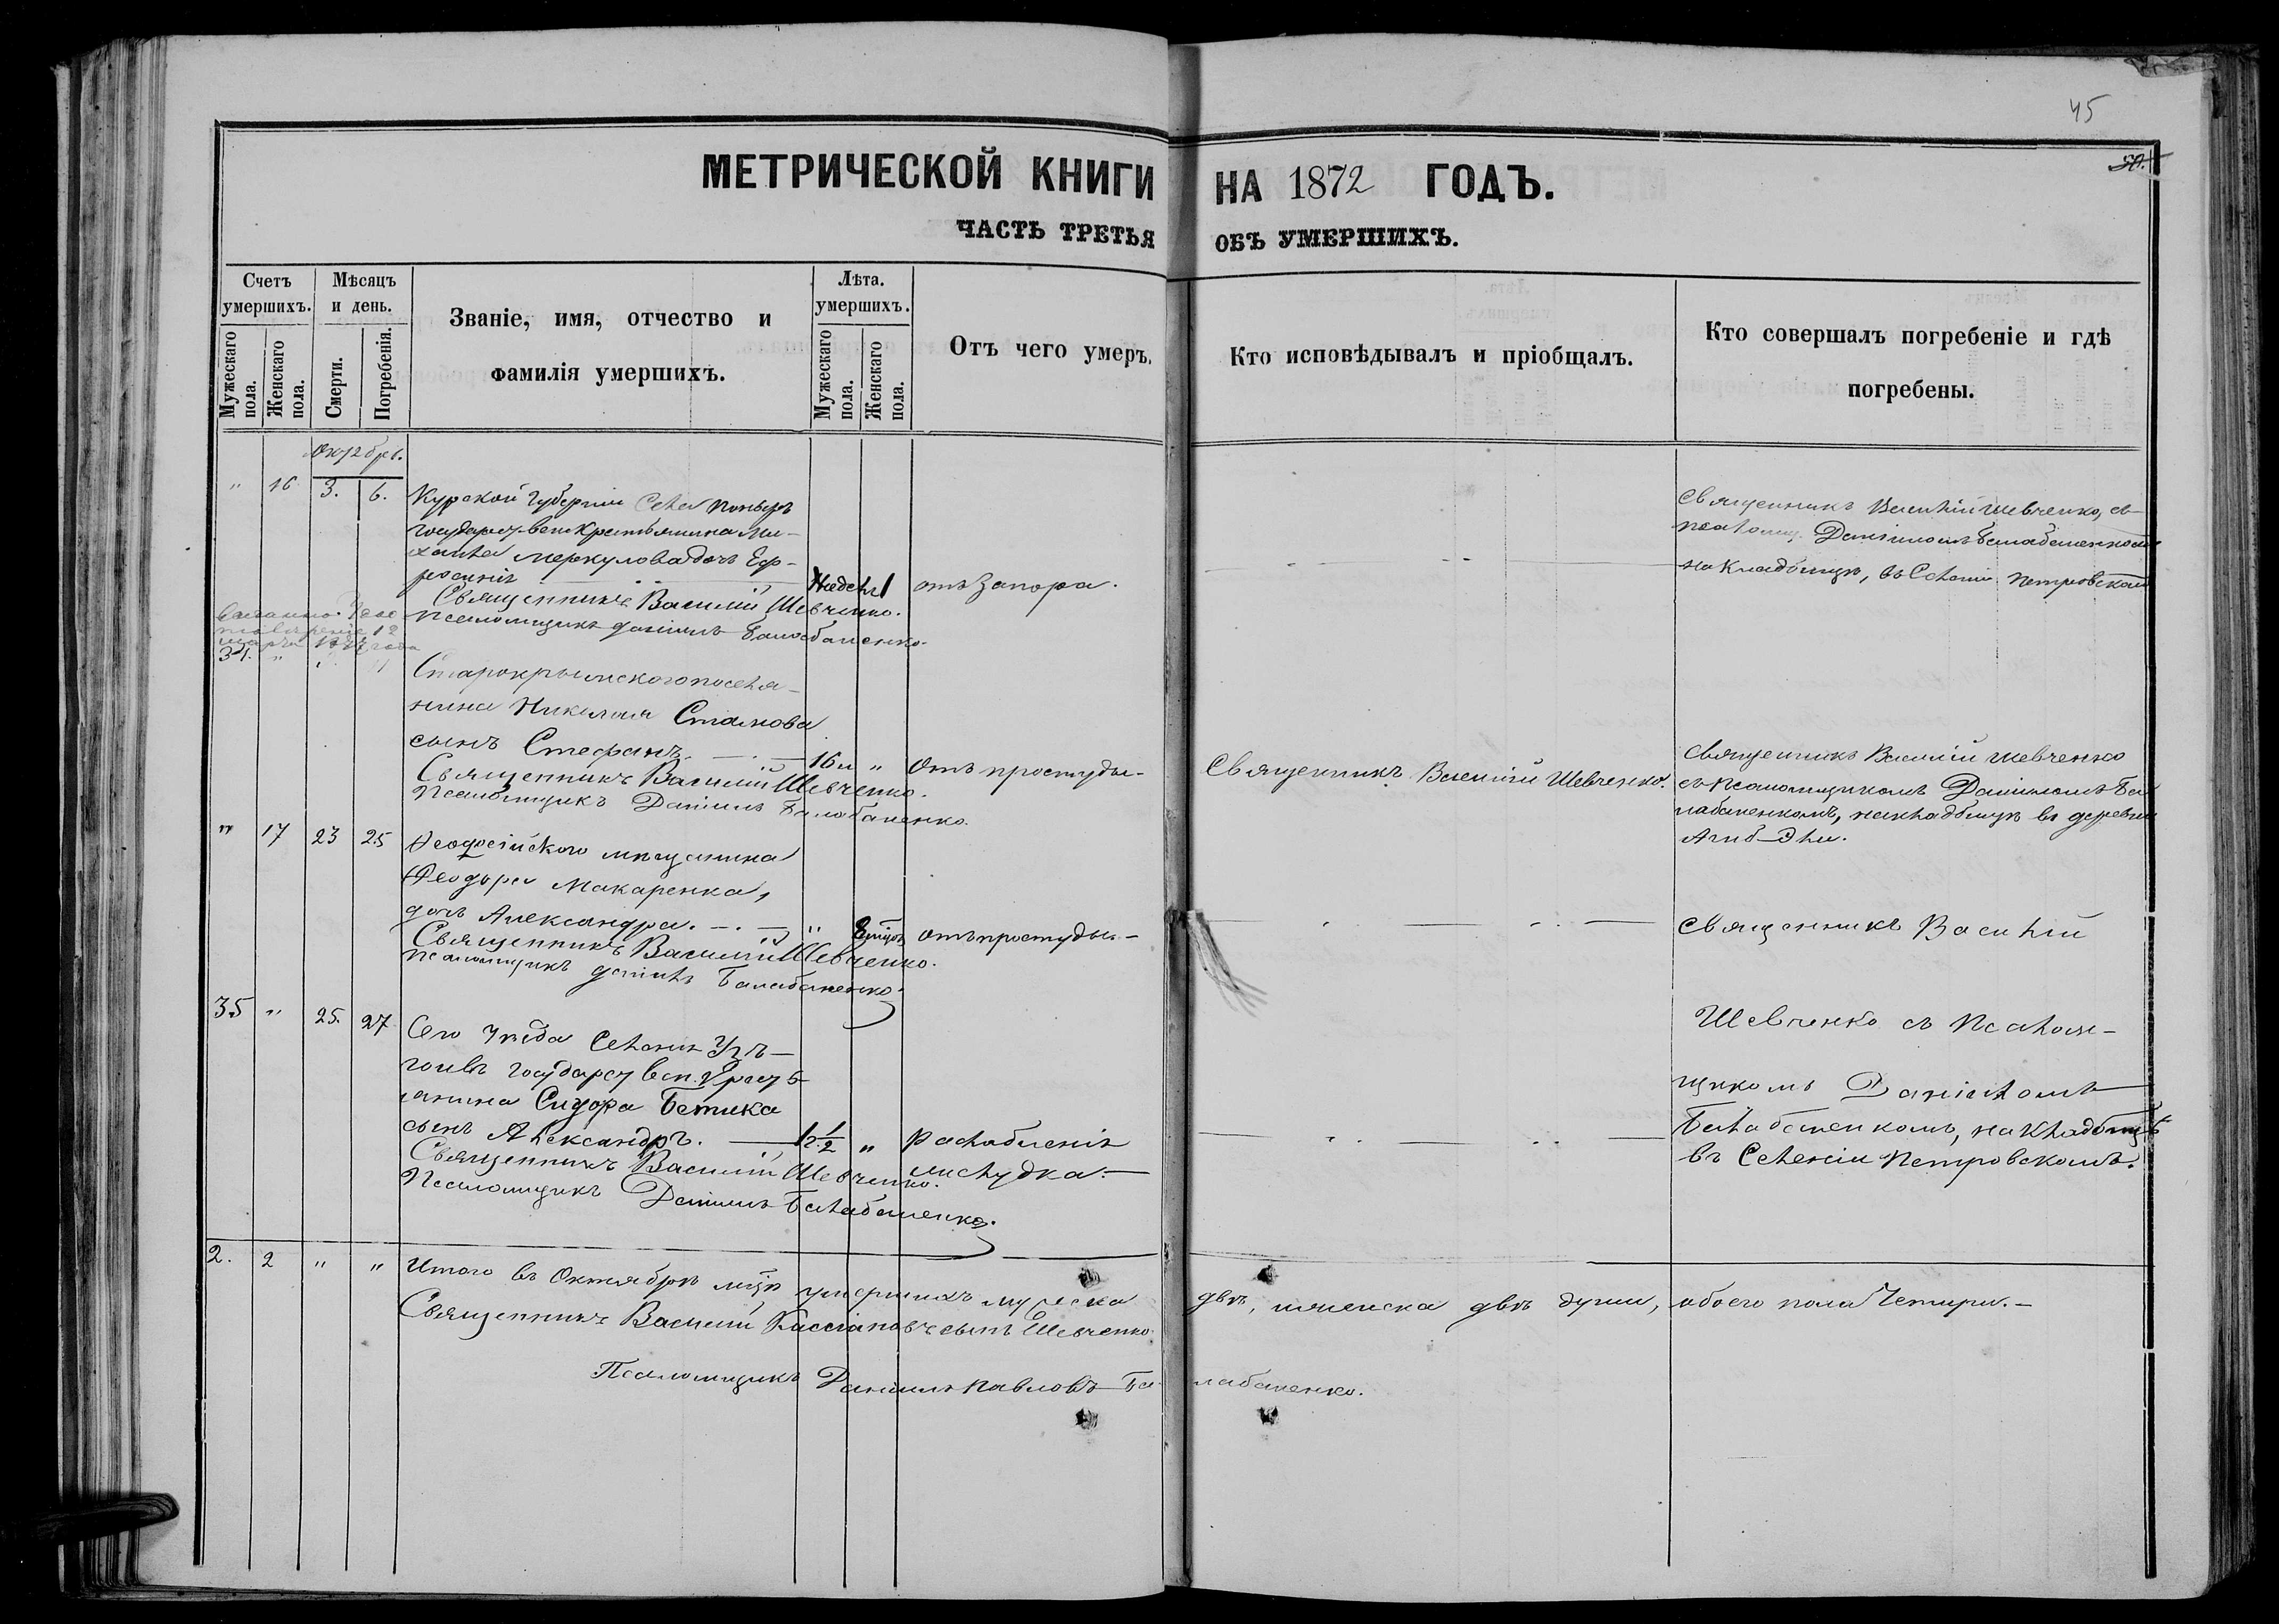 45
50.
МЕТРИЧЕСКОЙ КНИГИ НА 1872 ГОДЪ.
ЧАСТЬ ТРЕТЬЯ ОБЪ УМЕРШИХЪ.
Счетъ умершихъ.
Мужескаго пола.
Женскаго пола.
Мѣсяцъ и день.
Смерти.
Погребенія.
Званіе, имя, отчество и
фамилія умершихъ.
Лѣта. умершихъ.
Мужескаго пола.
Женскаго пола.
Отъ чего умеръ.
Кто исповѣдывалъ и пріобщалъ.
Кто совершалъ погребеніе и гдѣ
погребены.
" 16 3. 6.
Курской Губерніи Села
Ми-
хаила Меркулова дочь Ев-
росинія
отъ запора.
Священникъ Василій Шевченко.
Псаломщикъ Даніилъ Балабаненко.
Священникъ Василій Шевченко, съ
Даніиломъ Балабаненкомъ
на Кладбищѣ, въ Селеніи Петровскомъ
34. "
Старокрымского поселя-
нина Николая Стамова
сынъ Стефанъ. 16 "
Отъ простуды.
Священникъ Василій Шевченко.
Псаломщикъ Даніилъ Балабаненко.
Священникъ Василій Шевченко.
Священникъ Василій Шевченко
съ Псаломщикомъ Даніиломъ Ба
лабаненкомъ, на кладбищѣ въ деревни
" 17 23 25
Ѳеодосійского мѣщанина
Ѳеодора Макаренка,
дочь Александра. " 8
отъ простуды.
Священникъ Василій Шевченко.
Псаломщикъ Даніилъ Балабаненко.
Священникъ Василій
Шевченко съ Псалом-
щикомъ Даніиломъ
Балабаненкомъ, на кладбищѣ
въ Селеніи Петровскомъ.
35 " 25. 27
Сего Уѣзда Селенія
янина Сидора Бетика
сынъ Александръ. 2 1/2 "
Разслабленія
желудка.
Священникъ Василій Шевченко.
Псаломщикъ Даніилъ Балабаненко.
2. 2 " "
Итого въ Октябрѣ мцѣ умершихъ мужеска двѣ, женска двѣ души, обоего пола Четыри.
Священникъ Василій Кассіановъ сынъ Шевченко.
Псаломщикъ Даніилъ Павловъ Балабаненко.